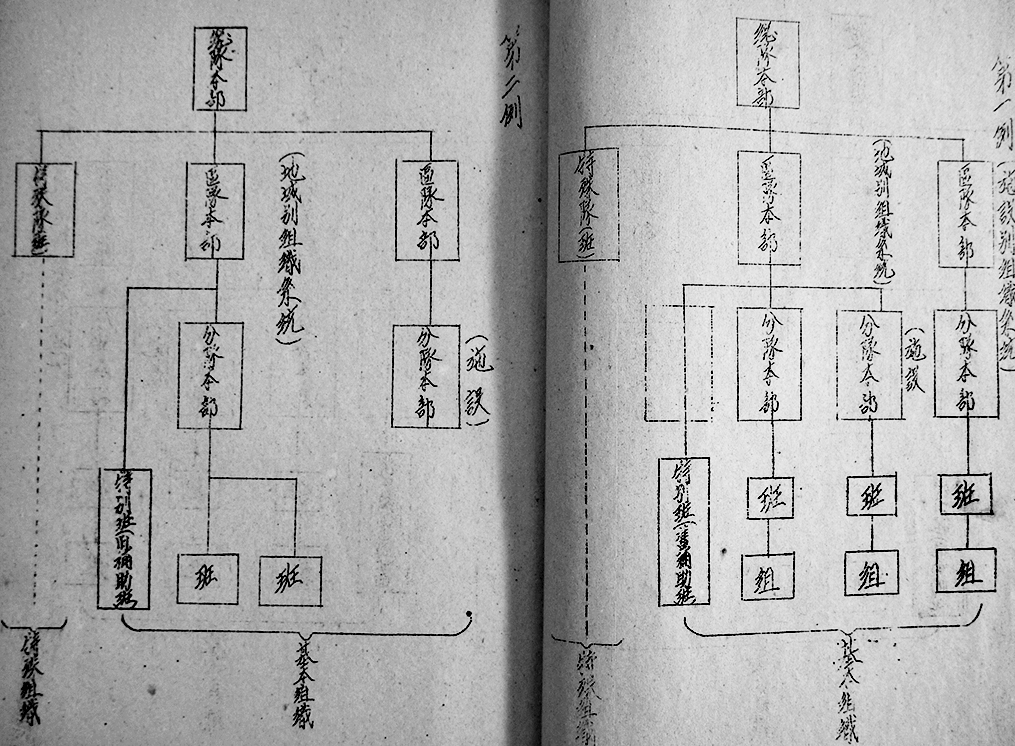 第一例
(施設別組織系統)
總隊本部
區隊本部
(地域別組織系統)
區隊本部
特殊隊(班)
分隊本部
(施設)
分隊本部
分隊本部
班
班
班
組
組
組
特別班(舊補助班)
基本組織
特殊組織
第二例
總隊本部
區隊本部
(地域別組織系統)
區隊本部
特殊隊(班)
(施設)
分隊本部
分隊本部
班
班
特別班(旧補助班)
基本組織
特殊組織